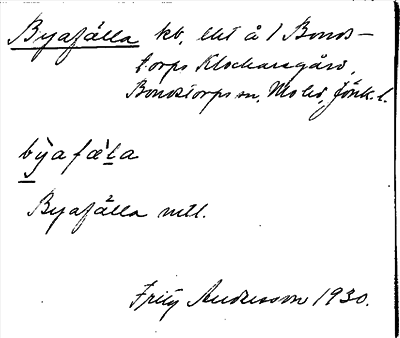 Byafälla kb, lht å 1 Bonds-
torps Klockaregård,
Bondstorps sn, Mo hd, Jönk. l.
bỳafæ̀ḷa
Byafälla mtl.
Fritz Andersson 1930.